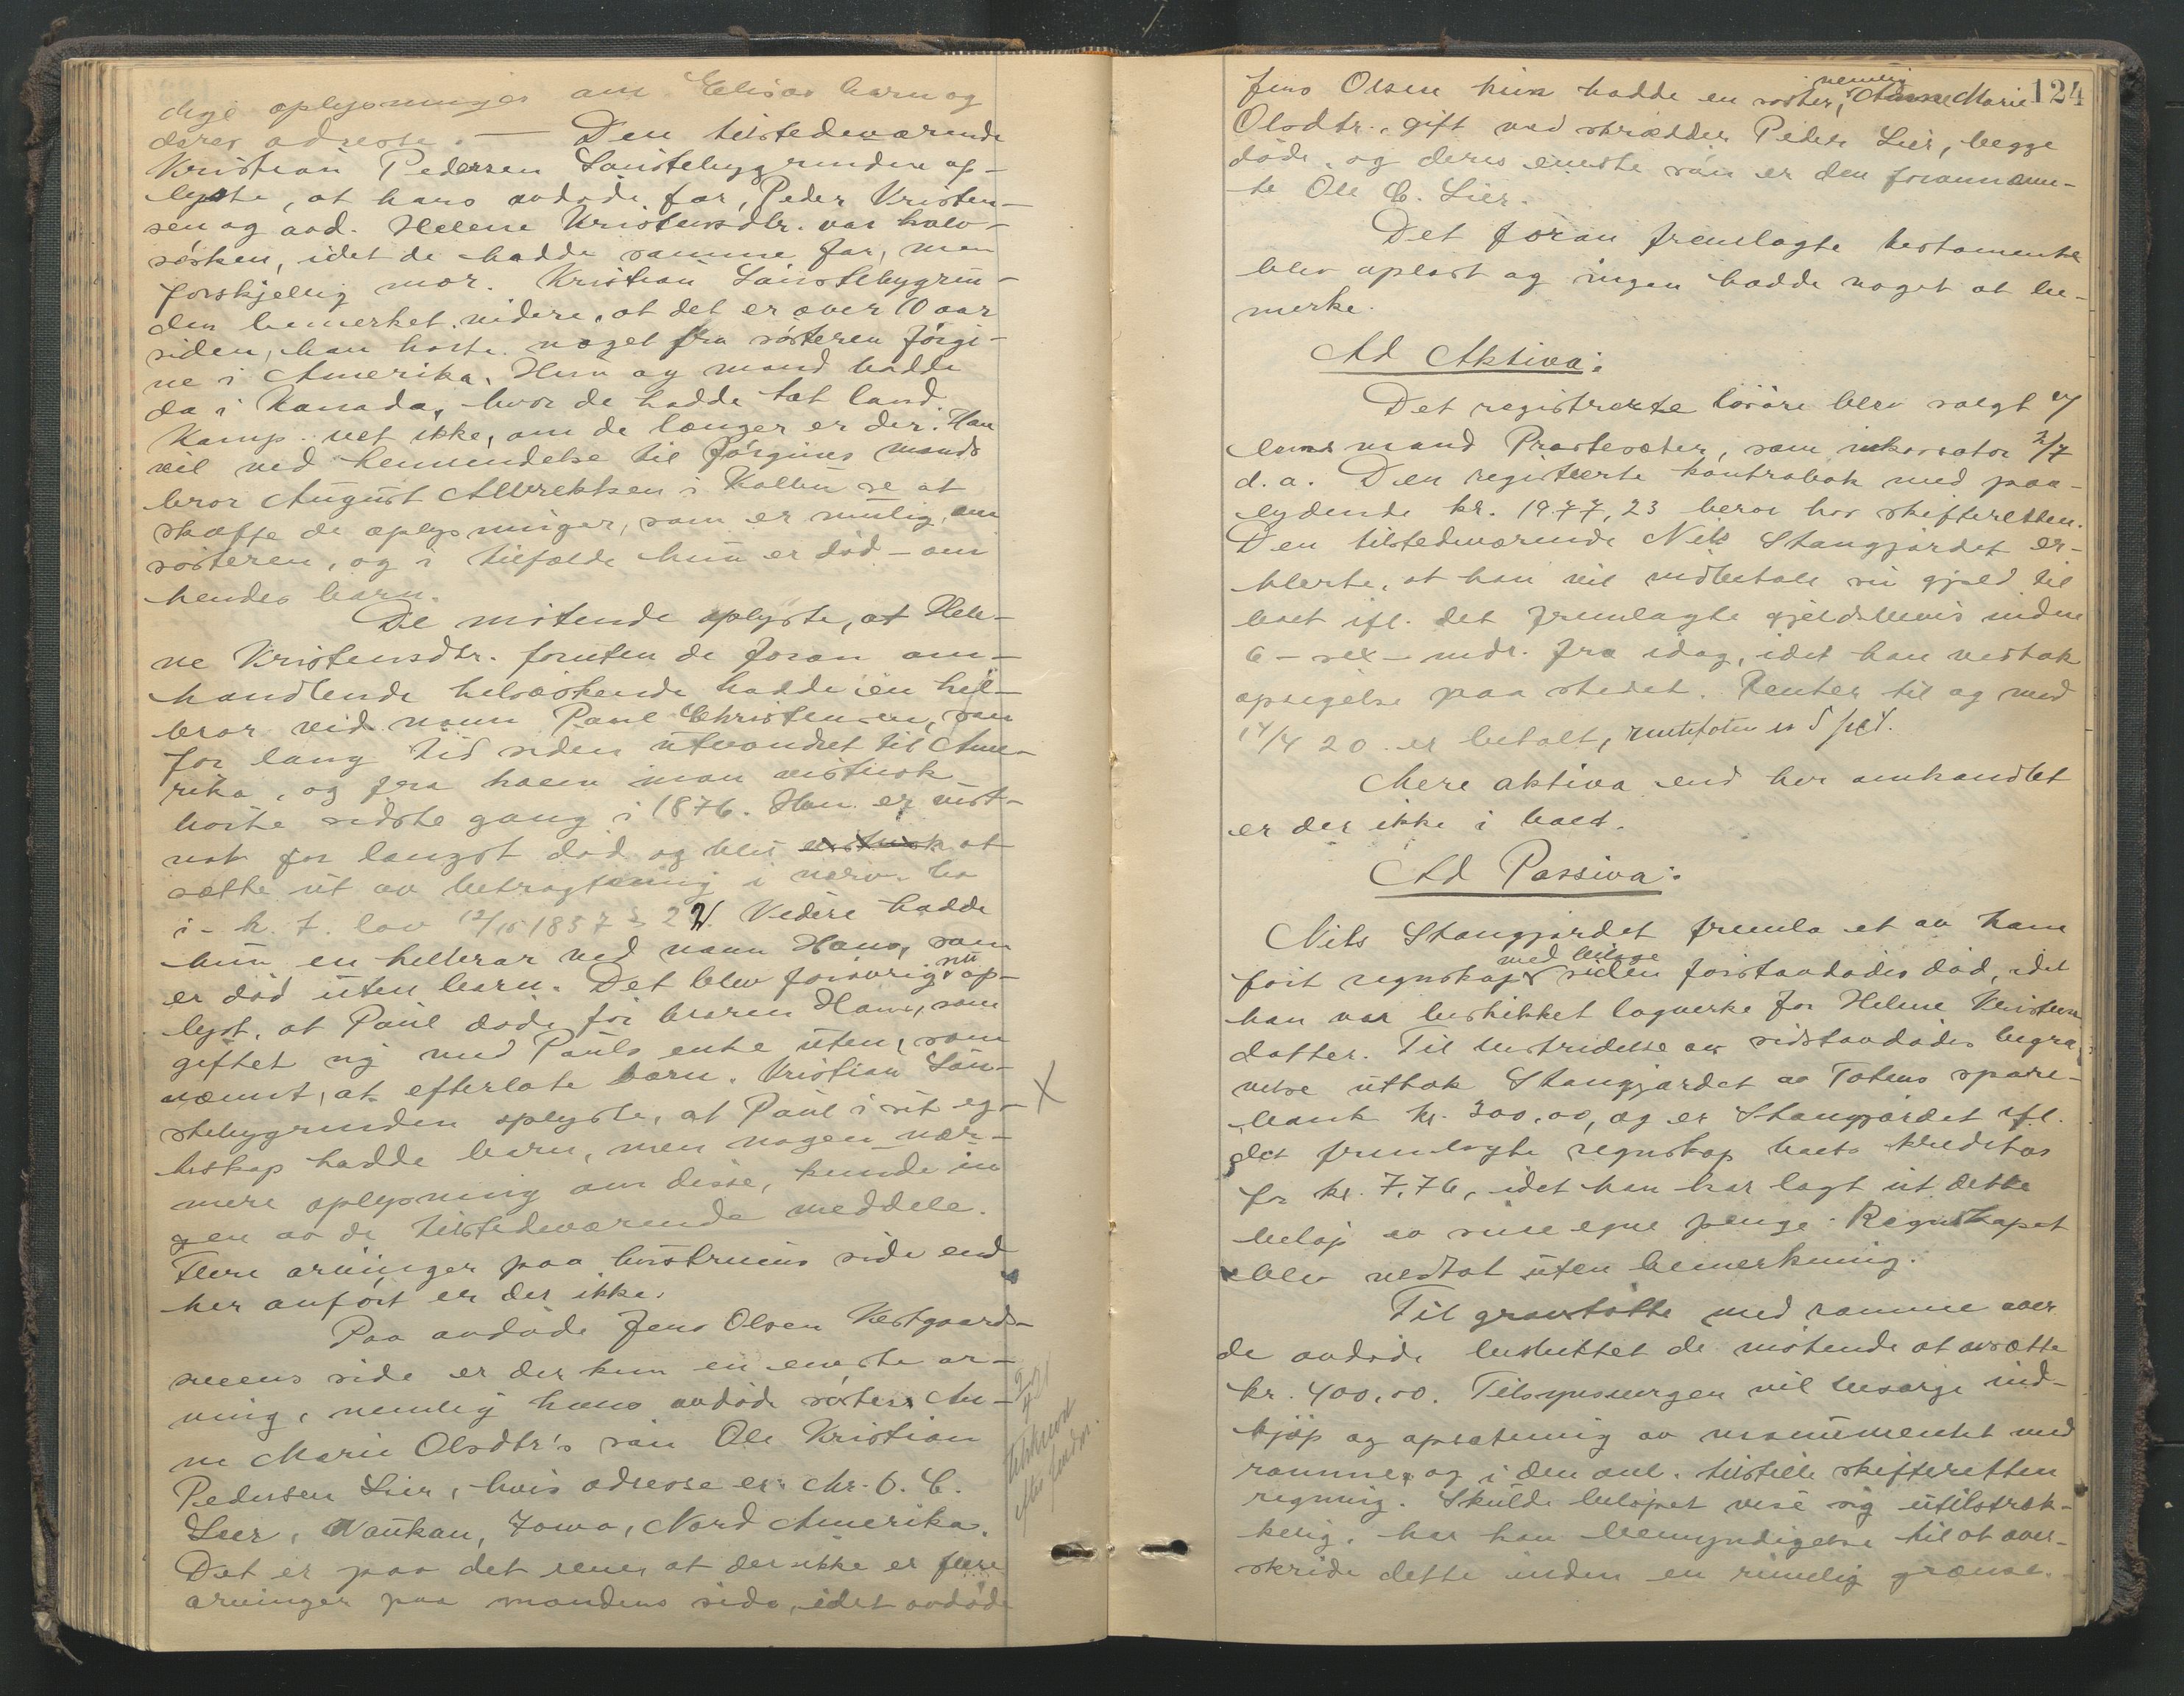 dige oplysninger om Elises barn og
deres adresse. — Den tilstedeværende
Kristian Pedersen Laustebygrunden op-
lyste, at hans avdøde far, Peder Kristen-
sen og avd. Helene Kristensdtr. var halv-
søsken, idet de hadde samme far, men
forskjellig mor. Kristian Laustebygrun-
den bemerket videre, at det er over 10 aar
siden, han hørte noget fra søsteren Jørgi-
ne i Amerika. Hun og mand hadde
da i Kanada, hvor de hadde tat land.
Komp. vet ikke, om de længer er der. Han
vil ved henvendelse til Jørgines mands
bror August Albrektsen i Kolbu se at
skaffe de oplysninger, som er mulig, om
søsteren, og i tilfælde hun er død – om
hendes barn.
De møtende oplyste, at Hele-
ne Kristensdtr. foruten de foran om-
handlende helsøskende hadde en hel-
bror ved navn Paul Christensen, som
for lang tid siden utvandret til Ame-
rika, og fra hvem man vistnok
hørte sidste gang i 1876. Han er vist-
nok for længst død og blir vistnok at
sætte ut av betragtning i nærv. bo
i h. t. lov 12/10 1857 § 22. Videre hadde
hun en helbror ved navn Hans, som
er død uten barn. Det blev forøvrig nu op-
lyst, at Paul døde før broren Hans, som
giftet sig med Pauls enke uten, som
nævnt, at efterlate barn. Kristian Lau-
stebygrunden oplyste, at Paul i sit eg-
teskap hadde barn, men nogen nær-
mere oplysning om disse, kunde in
gen av de tilstedeværende meddele.
Flere arvinger paa hustruens side end
her anført er der ikke.
Paa avdøde Jens Olsen Vestgaards-
eiens side er der kun en eneste ar-
ving, nemlig hans avdøde søster An-
ne Marie Olsdtr's søn Ole Kristian
Pedersen Lier, hvis adresse er: Mr. O. C.
Lier, Waukan, Iowa, Nord Amerika.
Det er paa det rene, at der ikke er flere
arvinger paa mandens side, idet avdøde
124
Jens Olsen kun hadde en søster, nemlig Anne Marie
Olsdtr., gift med skrædder Peder Lier, begge
døde, og deres eneste søn er den forannævn-
te Ole C. Lier.
Det foran fremlagte testamente
blev oplæst og ingen hadde noget at be-
merke.
Ad Aktiva:
Det registrerte løsøre blev solgt ved
lensmand Præstesæter, som inkassator 2/7
d. a. Den registrerte kontrabok med paa-
lydende kr. 1977,23 beror hos skifteretten.
Den tilstedeværende Nils Stangjordet er-
klærte, at han vil indbetale sin gjæld til
boet ifl. det fremlagte gjældsbevis inden
6 – sex – mdr. fra idag, idet han vedtok
opsigelse paa stedet. Renter til og med
14/4 20 er betalt, rentefoten er 5 pct.
Mere aktiva end her omhandlet
er der ikke i boet.
Ad Passiva:
Nils Stangjordet fremla et av ham
ført regnskap med bilage siden førstavdødes død, idet
han var beskikket lagverge for Helene Kristens
datter. Til bestridelse av sidstavdødes begra-
velse uttok Stangjordet av Totens spare-
bank kr. 300,00, og er Stangjordet ifl.
det fremlagte regnskap boets kreditor
for kr. 7,76, idet han har lagt ut dette
beløp av sine egne penge. Regnskapet
blev vedtat uten bemerkning.
Til gravstøtte med ramme over
de avdøde besluttet de møtende at avsætte
kr. 400,00. Tilsynsvergen vil besørge ind-
kjøp og opsætning av monumentet med
ramme og i den anl. tilstille skifteretten
regning. Skulde beløpet vise sig utilstræk-
kelig, har han bemyndigelse til at over-
skride dette inden en rimelig grænse.